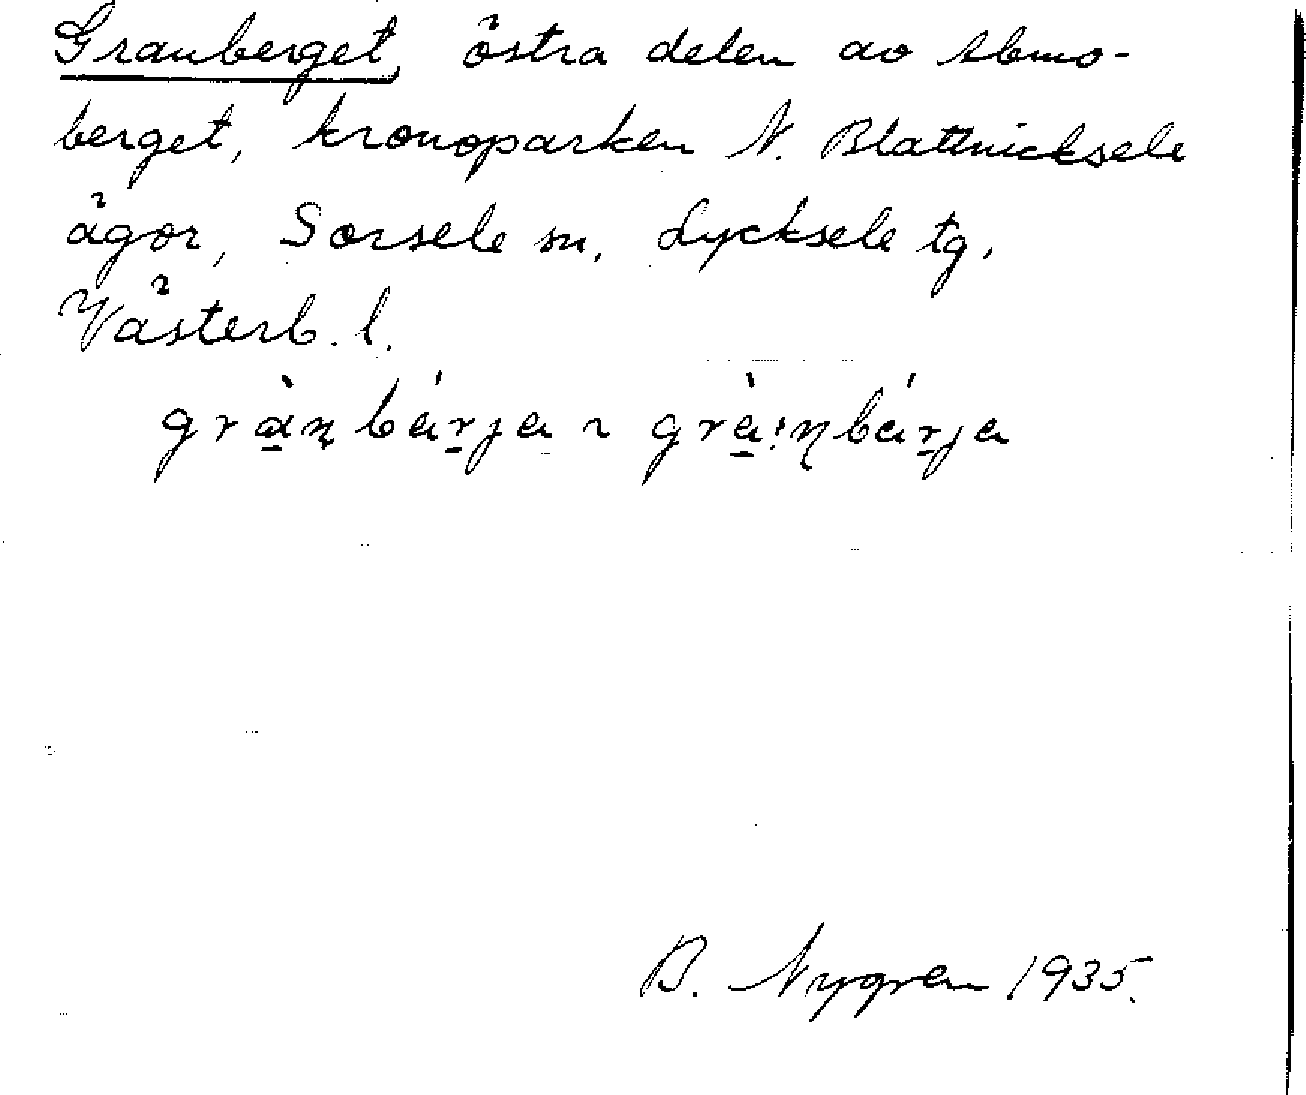 Granberget, östra delen av Abmo-
berget, kronoparken N. Blattnicksele
ägor, Sorsele sn, Lycksele tg,
Västerb. l.
B. Nygren 1935.